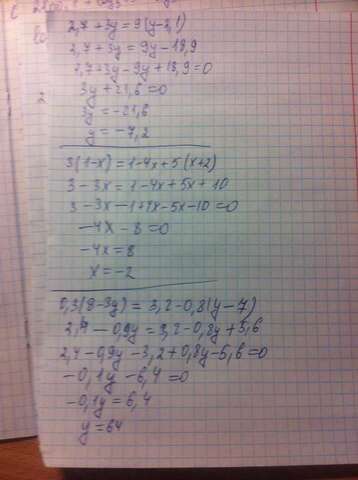 2,7+3y=9(y-2,1)
2,7+3y=9y-18,9
2,7+3y-9y+18,9=0
2
3y+21,6=0
3y=-21,6
y=-7,2
3(1-x)=1-4x+5(x+2)
3-3x=1-4x+5x+10
3-3x-1+4x-5x-10=0
-4x-8=0
-4x=8
x=-2
0,3(8-3y)=3,2-0,8(y-7)
2,4-0,9y=3,2-0,8y+5,6
2,4-0,9y-3,2+0,8y-5,6=0
-0,1y-6,4=0
-0,1y=6,4
y=64